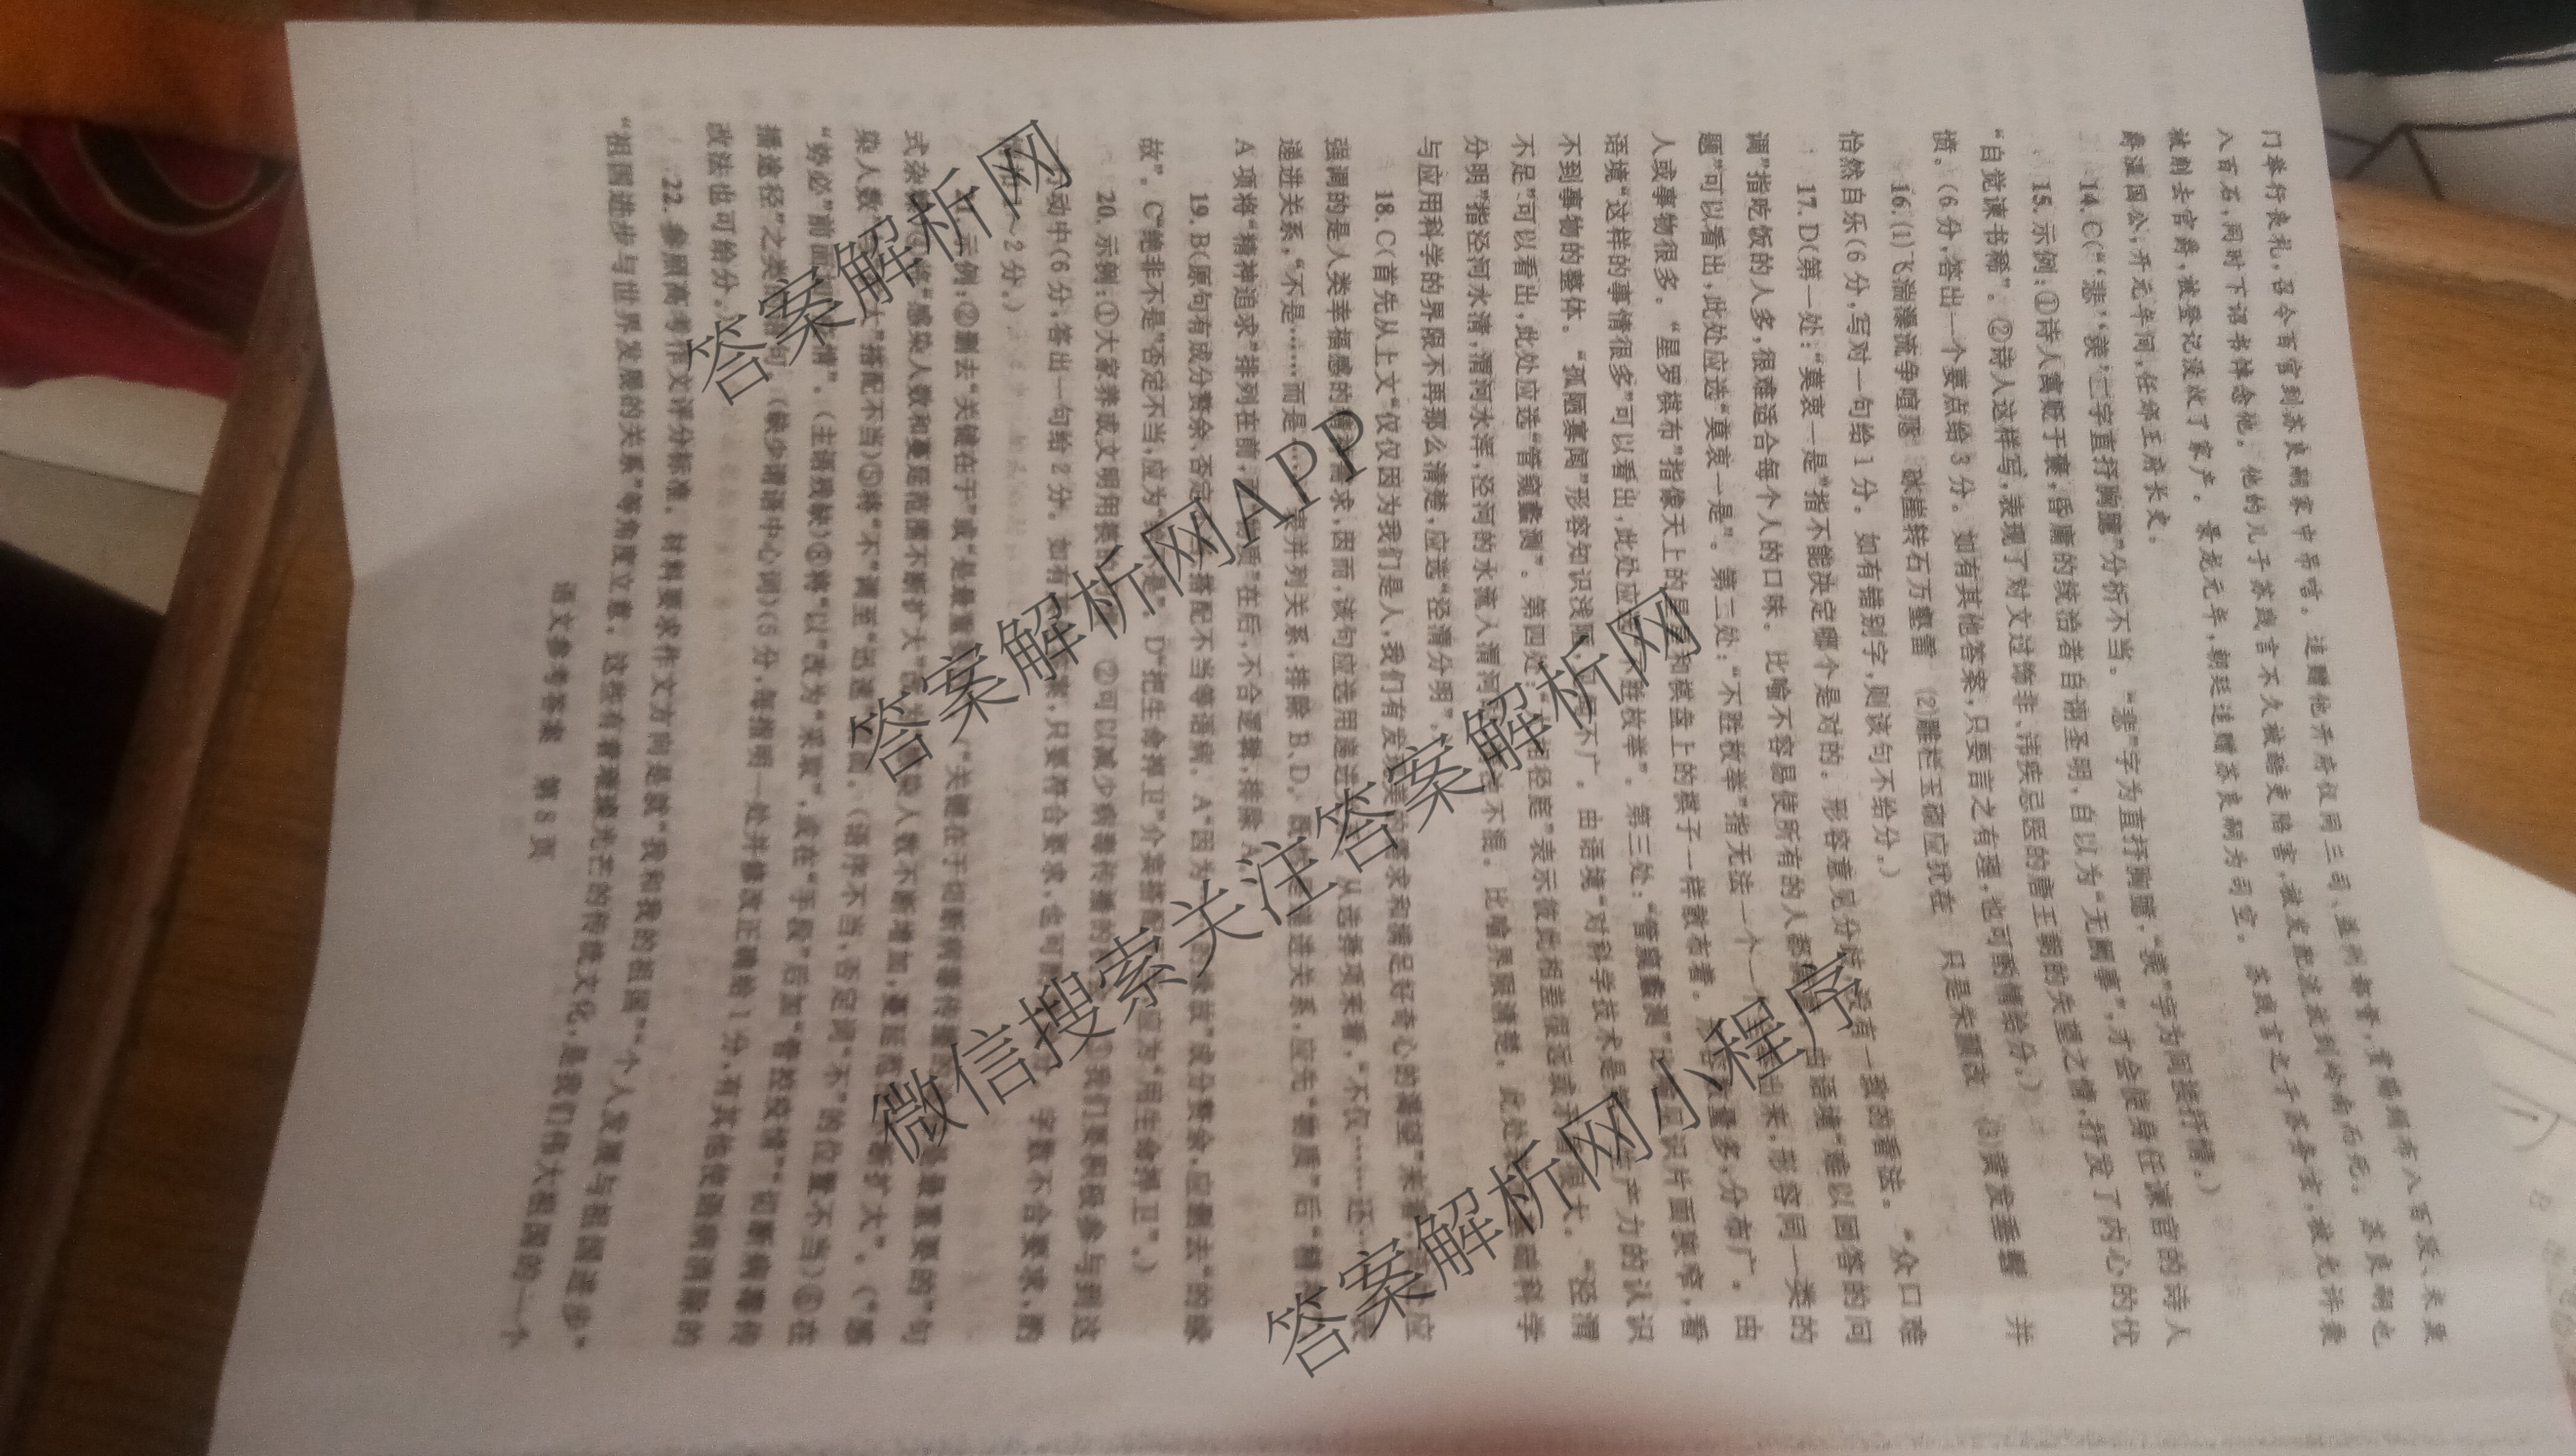 门举行丧礼,召令百官到苏良嗣家中吊唁。追赠他开府仪同三司、益州都督,赏赐绢布八百段、米粟
八百石,同时下诏书悼念他。他的儿子苏践言不久被酷吏陷害,被发配流放到岭南而死。苏良嗣也
被削去官爵,被登记没收了家产。景龙元年,朝廷追赠苏良嗣为司空。苏践言之子苏务玄,被允许袭
爵温国公;开元年间,任邠王府长史。
14. C(“‘悲’‘羡’二字直抒胸臆”分析不当。“悲”字为直抒胸臆,“羡”字为间接抒情。)
15. 示例:①诗人寓贬于褒,昏庸的统治者自诩圣明,自以为“无阙事”,才会使身任谏官的诗人
“自觉谏书稀”。②诗人这样写,表现了对文过饰非、讳疾忌医的唐王朝的失望之情,抒发了内心的忧
愤。(6分,答出一个要点给3分。如有其他答案,只要言之有理,也可酌情给分。)
16. (1)飞湍瀑流争喧豗 砯崖转石万壑雷 (2)雕栏玉砌应犹在 只是朱颜改 (3)黄发垂髫 并
怡然自乐(6分,写对一句给1分。如有错别字,则该句不给分。)
17. D(第一处:“莫衷一是”指不能决定哪个是对的。形容意见分歧,没有一致的看法。“众口难
调”指吃饭的人多,很难适合每个人的口味。比喻不容易使所有的人都满意。由语境“难以回答的问
题”可以看出,此处应选“莫衷一是”。第二处:“不胜枚举”指无法一个一个列举出来,形容同一类的
人或事物很多。“星罗棋布”指像天上的星星和棋盘上的棋子一样散布着。形容数量多,分布广。由
语境“这样的事情很多”可以看出,此处应选“不胜枚举”。第三处:“管窥蠡测”比喻见识片面狭窄,看
不到事物的整体。“孤陋寡闻”形容知识浅陋,见闻不广。由语境“对科学技术是第一生产力的认识
不足”可以看出,此处应选“管窥蠡测”。第四处:“大相径庭”表示彼此相差很远或矛盾很大。“泾渭
分明”指泾河水清,渭河水浑,泾河的水流入渭河时,清浊不混。比喻界限清楚。此处表示基础科学
与应用科学的界限不再那么清楚,应选“泾渭分明”。
18. C(首先从上文“仅仅因为我们是人,我们有发现美的需求和满足好奇心的渴望”来看,后文应
强调的是人类幸福感的精神需求,因而,该句应选用递进关系。从选择项来看,“不仅……还……”表
递进关系,“不是……而是……”表并列关系,排除B、D。既然是递进关系,应先“物质”后“精神”,
A项将“精神追求”排列在前,而“物质”在后,不合逻辑,排除A。
19. B(原句有成分赘余、否定不当、搭配不当等语病。A“因为……的缘故”成分赘余,应删去“的缘
故”。C“绝非不是”否定不当,应为“绝不是”。D“把生命捍卫”介宾搭配不当,应为“用生命捍卫”。)
20. 示例:①大家养成文明用餐的 ②可以减少病毒传播的 ③我们要积极参与到这
动中(6分,答出一句给2分。如有 案,只要符合要求,也可 字数不合要求,酌
1～2分。)
示例:②删去“关键在于”或“是最重要的”。(“关键在于切断病毒传播的 是最重要的”句
式杂糅)③将“感染人数和蔓延范围不断扩大”改为“感染人数不断增加,蔓延范围不断扩大”。(“感
染人数”与“扩大”搭配不当)⑤将“不”调至“迅速”前面。(语序不当,否定词“不”的位置不当)⑥在
“势必”前面加“疫情”。(主语残缺)⑧将“以”改为“采取”,或在“手段”后加“管控疫情”“切断病毒传
播途径”之类的语句。(缺少谓语中心词)(5分,每指明一处并修改正确给1分,有其他使语病消除的
改法也可给分。)
22. 参照高考作文评分标准。材料要求作文方向是就“我和我的祖国”“个人发展与祖国进步”
“祖国进步与世界发展的关系”等角度立意。这些有着璀璨光芒的传统文化,是我们伟大祖国的一个
语文参考答案 第8页
答案解析网
答案解析网APP
微信搜索关注答案解析网
答案解析网小程序